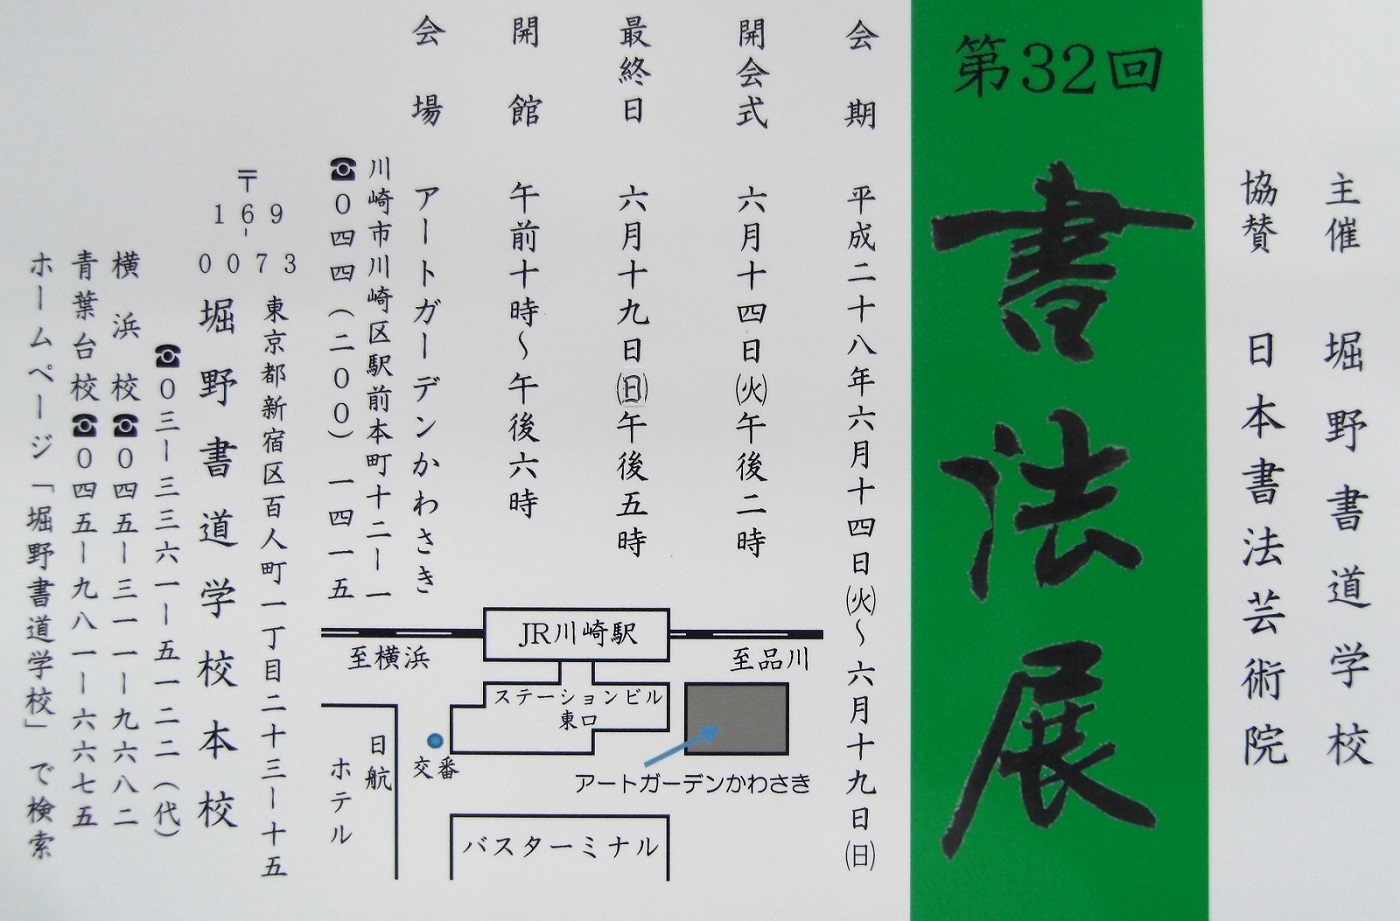 主催 堀野書道学校
協賛 日本書法芸術院
第32回
書法展
会期 平成二十八年六月十四日㈫〜六月十九日㈰
開会式 六月十四日㈫午後二時
最終日 六月十九日㈰午後五時
開館 午前十時〜午後六時
会場 アートガーデンかわさき
川崎市川崎区駅前本町十二ー一
☎０四四（二００）一四一五
JR川崎駅
至横浜
至品川
ステーションビル
東口
アートガーデンかわさき
交番
日航
ホテル
バスターミナル
〒
169-
0073
東京都新宿区百人町一丁目二十三ー十五
堀野書道学校本校
☎０三ー三三六一ー五一二二（代）
横浜校☎０四五ー三一一ー九六八二
青葉台校☎０四五ー九八一ー六六七五
ホームページ「堀野書道学校」で検索